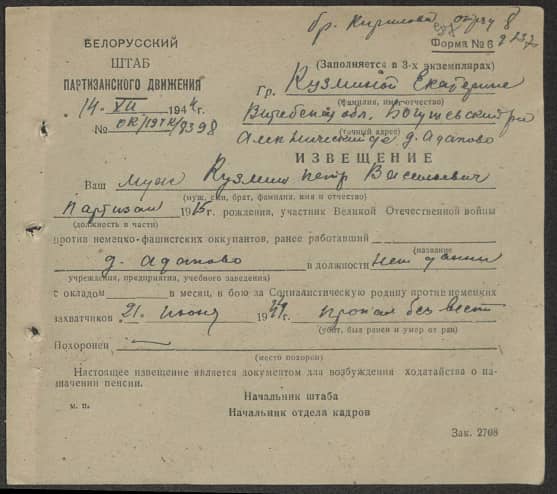 бр. Кирилова отряд 8
БЕЛОРУССКИЙ
ШТАБ
ПАРТИЗАНСКОГО ДВИЖЕНИЯ
14. XII 1944 г.
№ ОК/19ТК/8398
Форма № 6
(Заполняется в 3-х экземплярах)
Гр. Кузминой Екатерине
(фамилия, имя, отчество)
Витебская обл.
(точный адрес)
д. Адапово
ИЗВЕЩЕНИЕ
Ваш муж Кузмин Петр Васильевич
(муж, сын, брат, фамилия, имя и отчество)
Партизан 1915 г. рождения, участник Великой Отечественной войны
(должность в части)
против немецко-фашистских оккупантов, ранее работавший
(название
д. Адапово в должности нет данни
учреждения, предприятия, учебного заведения)
с окладом в месяц, в бою за Социалистическую родину против немецких
захватчиков 21. июня 1944 г. пропал без вести
(убит, был ранен и умер от ран)
Похоронен —
(место похорон)
Настоящее извещение является документом для возбуждения ходатайства о на-
значении пенсии.
Начальник штаба
м. п.
Начальник отдела кадров
Зак. 2708